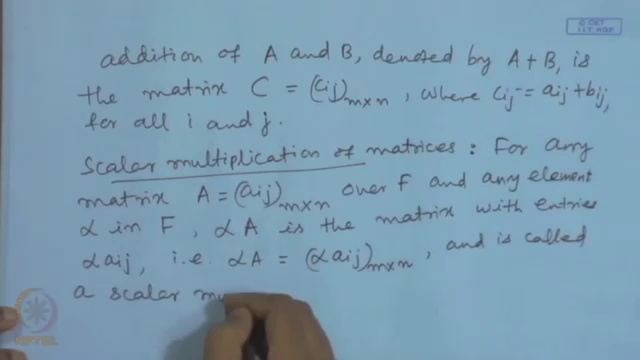 © CET
I.I.T. KGP
addition of A and B, denoted by A + B, is
the matrix C = (cij)m×n, where cij = aij + bij,
for all i and j.
Scalar multiplication of matrices : For any
matrix A = (aij)m×n over F and any element
α in F, αA is the matrix with entries
αaij, i.e. αA = (αaij)m×n, and is called
a scalar mu
NPTEL